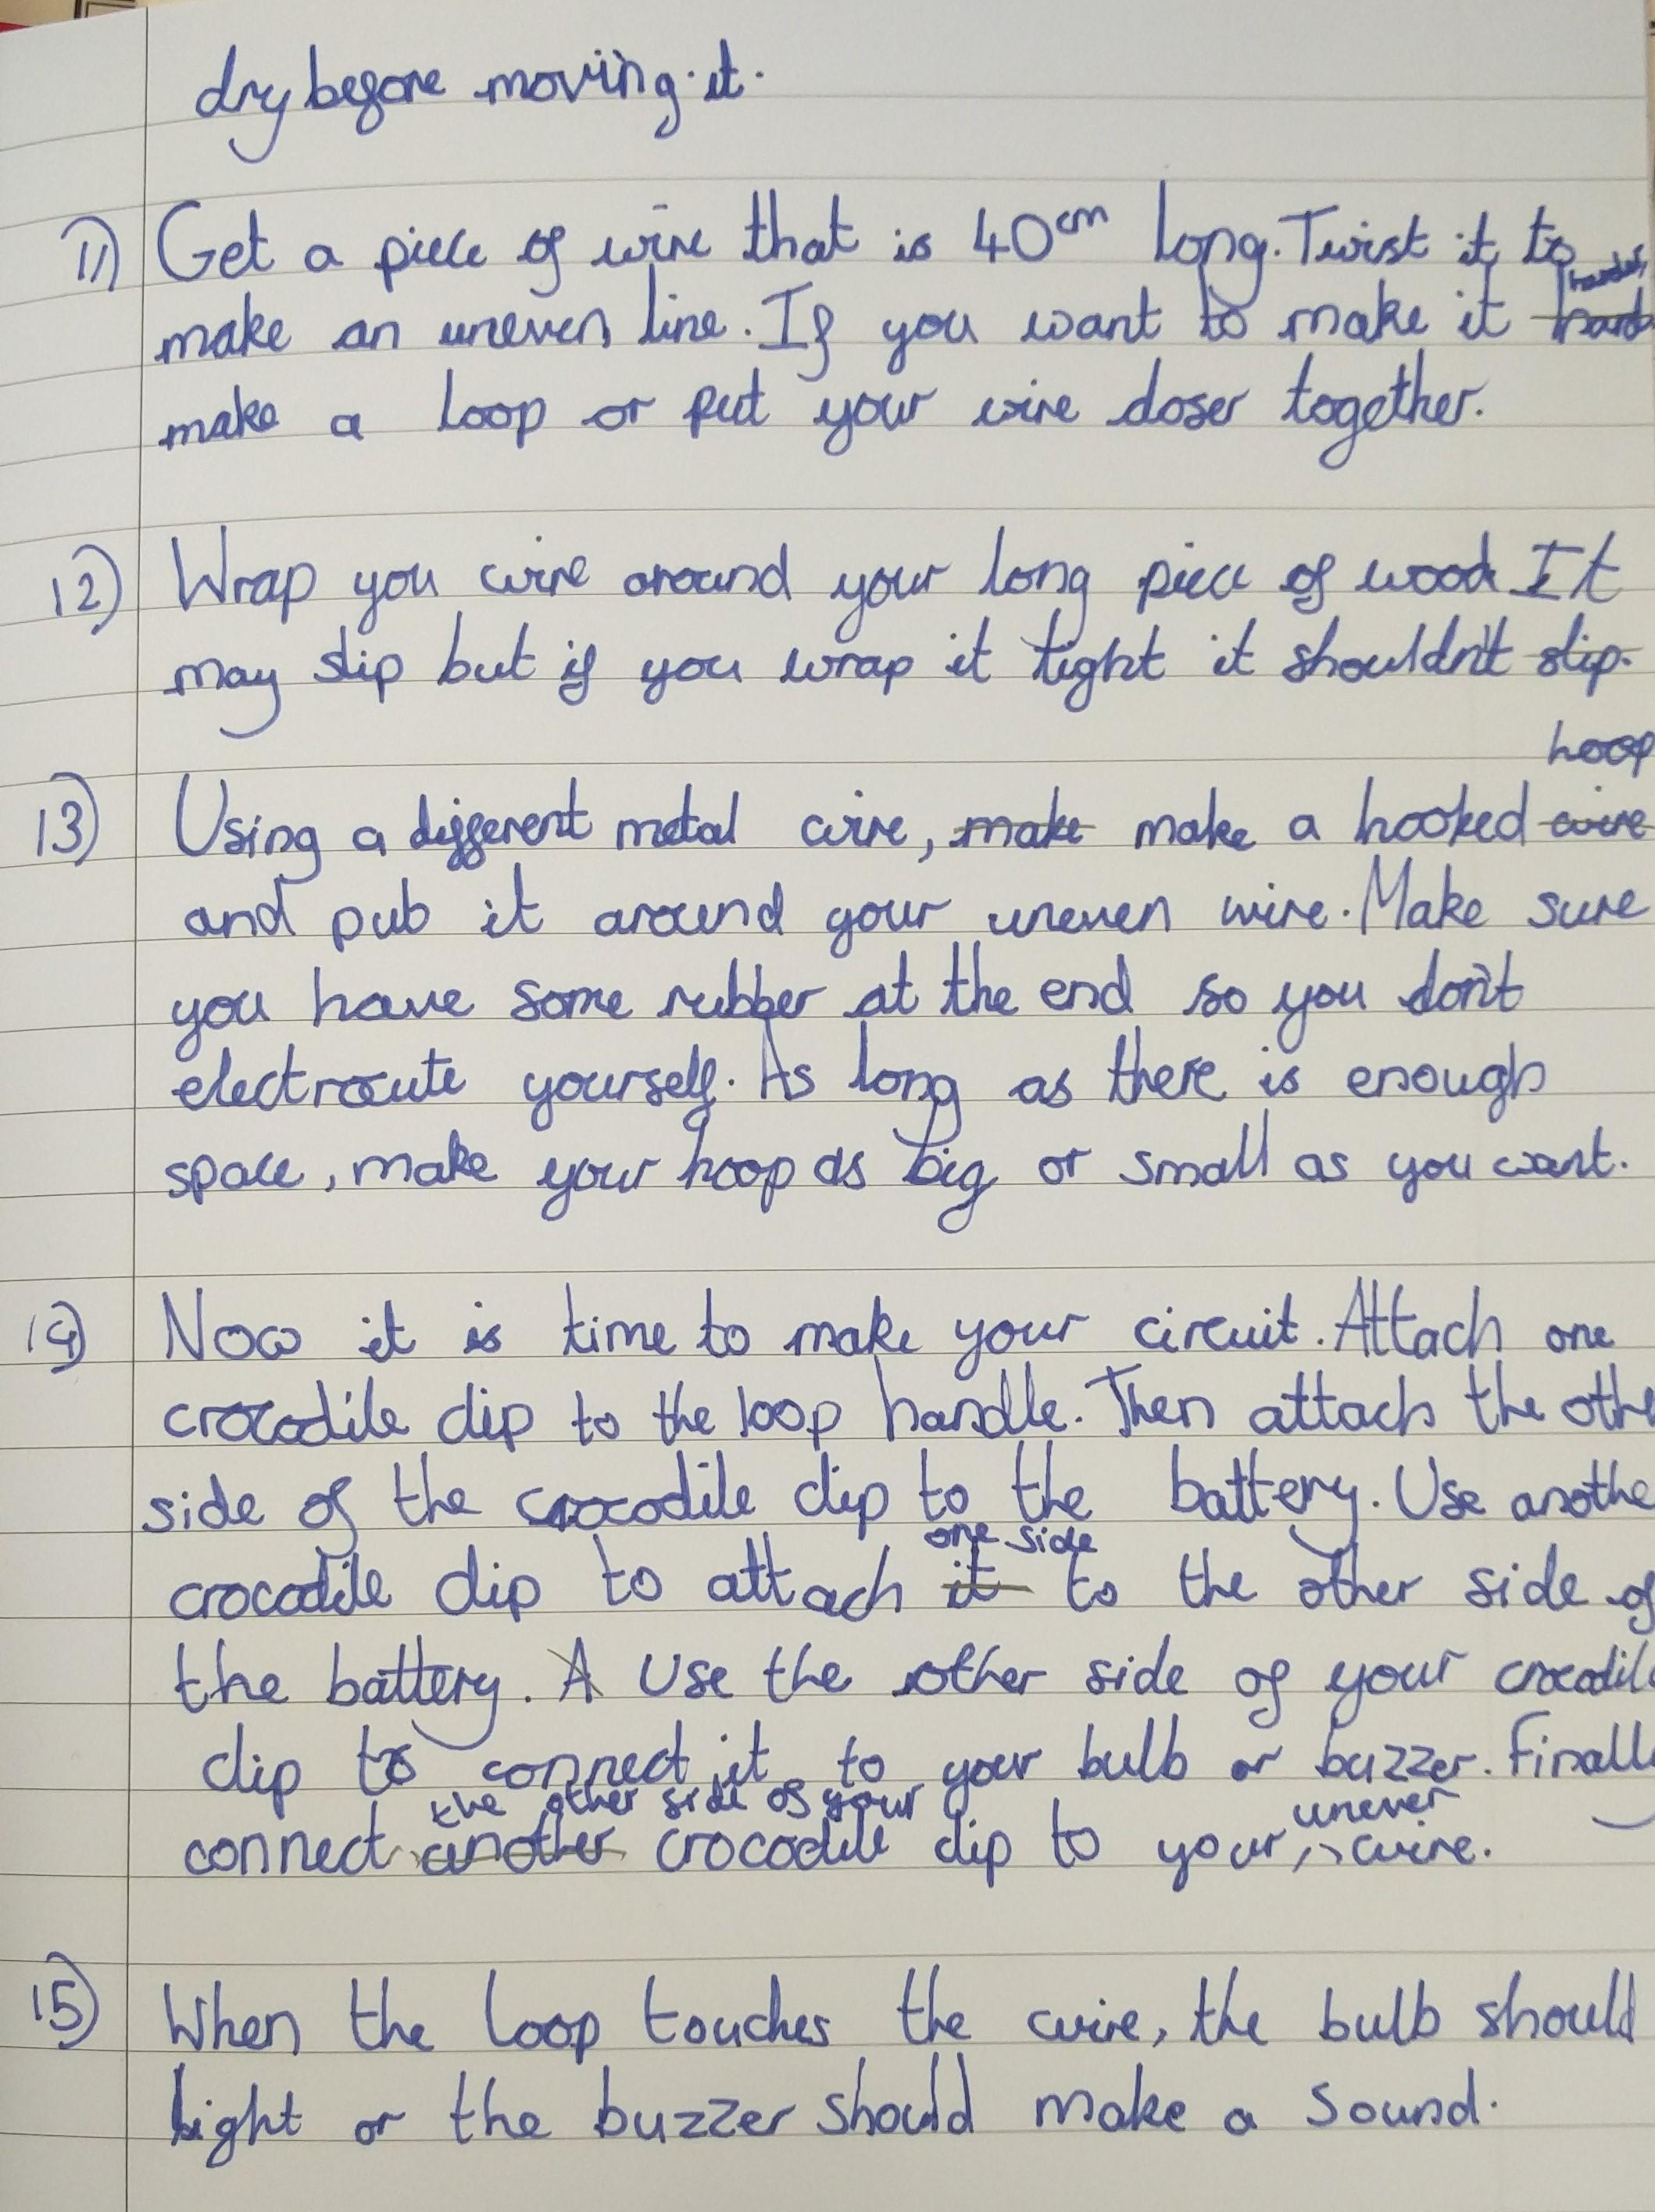 dry before moving it.
11) Get a piece of wire that is 40cm long. Twist it to
harder,
make an uneven line. If you want to make it hard
make a loop or put your wire closer together.
12) Wrap you wire around your long piece of wood It
may slip but if you wrap it tight it shouldn't slip.
hoop
13) Using a different metal wire, make make a hooked wire
and pub it around your uneven wire. Make sure
you have some rubber at the end so you don't
electrocute yourself. As long as there is enough
space, make your hoop as big or small as you want.
14) Now it is time to make your circuit. Attach one
crocodile clip to the loop handle. Then attach the othe
side of the crocodile clip to the battery. Use anothe
one side
crocodile clip to attach it to the other side of
the battery. A Use the other side of your crocodile
clip to connect it to your bulb or buzzer. Finall
the other side of your uneven
connect another crocodile clip to your wire.
15) When the loop touches the wire, the bulb should
light or the buzzer should make a sound.